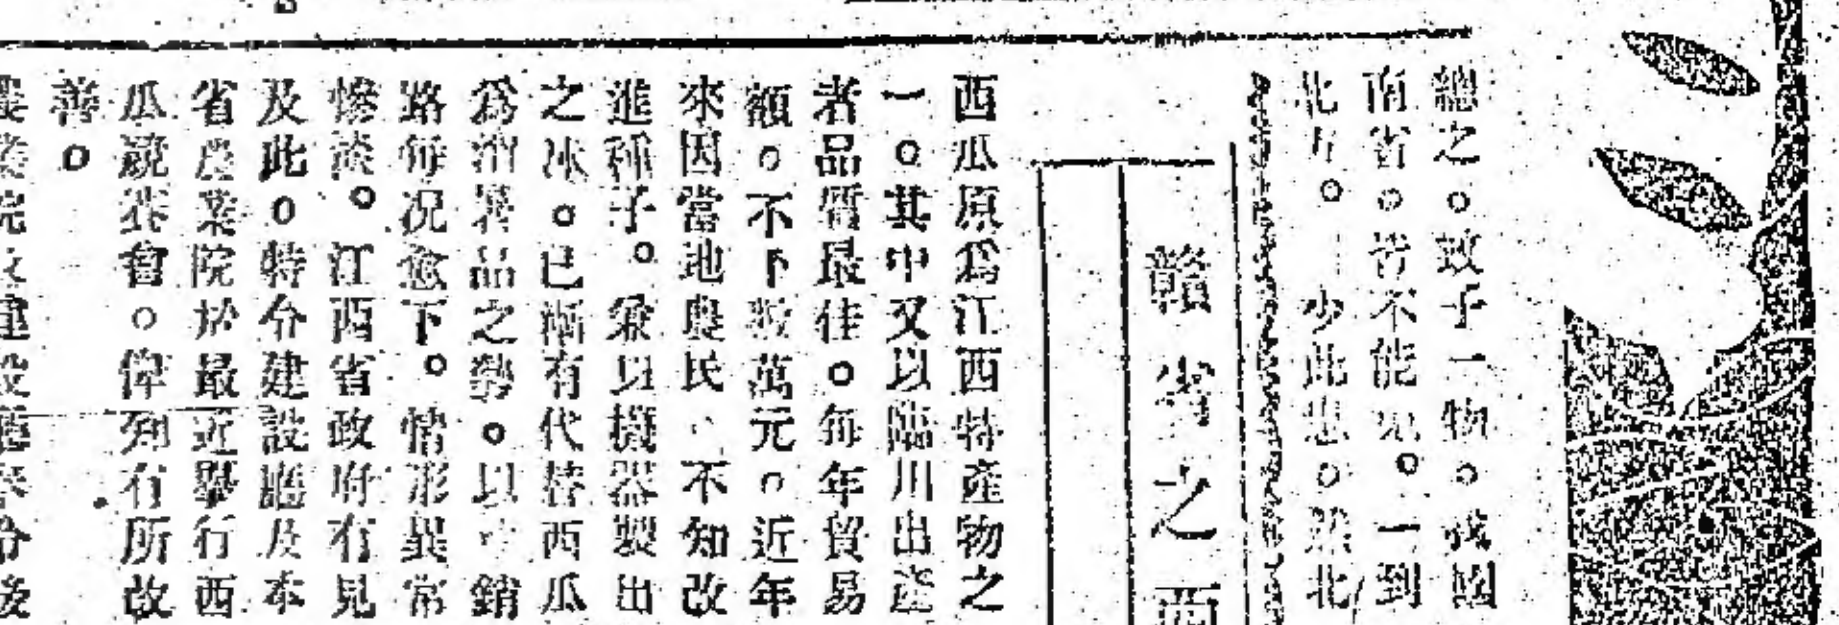 總之。蚊子一物。我國
南省。皆不能免。一到
北方。少此患。北
贛省之西
西瓜原爲江西特產物之
一。其中又以臨川出產
者品質最佳。每年貿易
額。不下數萬元。近年
來因當地農民、不知改
進種子。兼以機器製出
之冰。已漸有代替西瓜
爲消暑品之勢。以銷
路每况愈下。情形異常
慘淡。江西省政府有見
及此。特令建設廳及本
省農業院於最近舉行西
瓜競賽會。俾知有所改
善。
農業院建設廳奉令後